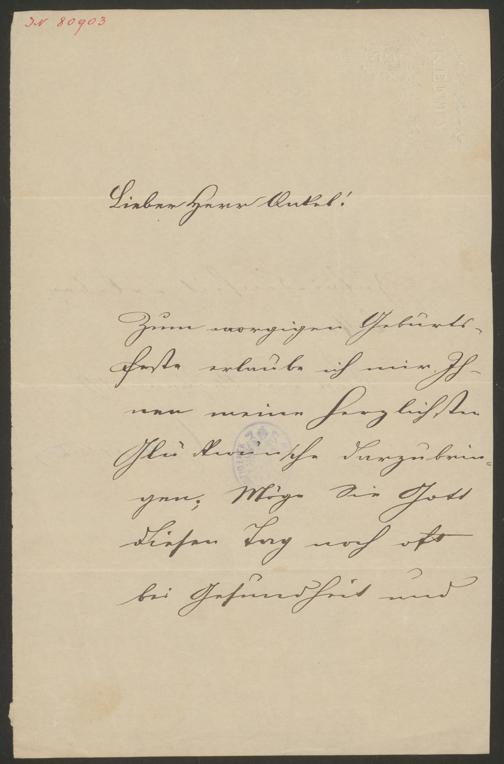 IN 80903
Lieber Herr Onkel!
Zum morgigen Geburts-
feste erlaube ich mir Ih-
nen meine herzlichsten
Glückwünsche darzubrin-
gen; Möge Sie Gott
diesen Tag noch oft
bei Gesundheit und